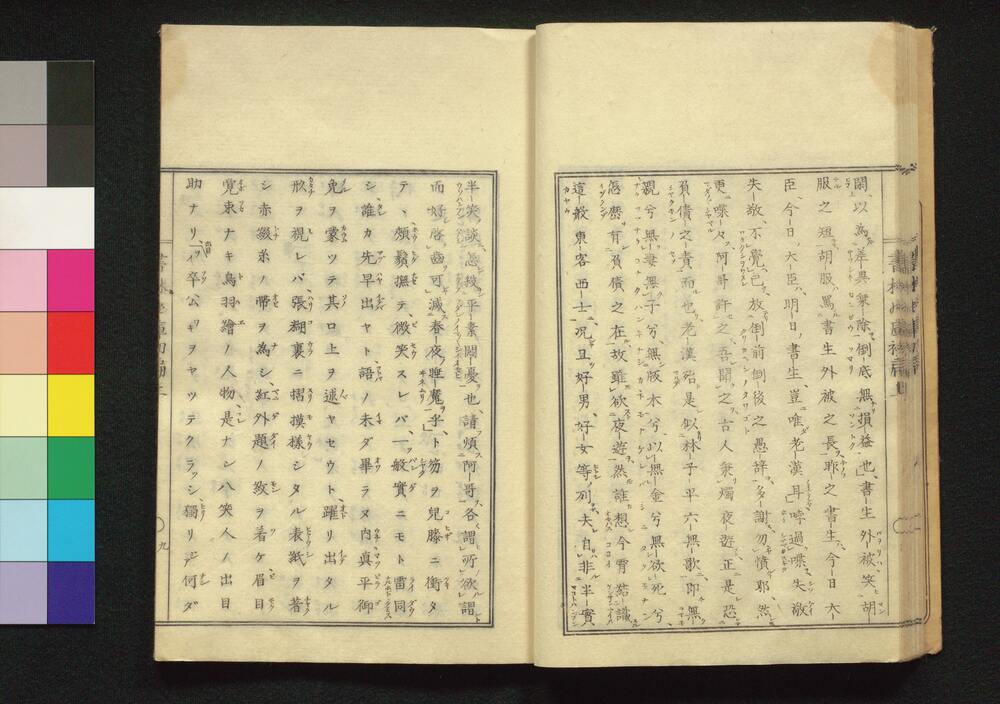 閙、以為差異棄除、倒底無損益也、書生外被、笑胡
服之短、胡服、罵書生外被之長、昨之書生、今日大
臣、今日大臣、明日書生、豈唯老漢耳、哱過喋失敬
失敬、不覺已放倒前倒後之愚辞、多謝、勿憤耶、然
更喋々、阿哥許之、吾聞之、古人秉燭夜遊、正是恐
負債之責而也、老漢殆是似林子平六無歌、即無
親兮無妻無子兮、無版木兮、以無金兮無欲死兮
怎麼有負債之在、故雖欲夜遊、然誰想今霄結識
這般東客西士、况且好男、好女等列夫、自非半實
半笑談、怎救平素閙憂也、請煩阿哥、各謂所欲謂
而好啓齒可減春夜睡魔乎ト笏ヲ兒膝ニ衝タ
テ、頰鬚撫テ、微笑スレバ、一般實ニモト雷同
シ誰カ先早出ヤト、語ノ未ダ畢ラヌ内真平御
免ヲ蒙ツテ其口上ヲ述ヤセウト、躍リ出タル
形ヲ視レバ張糊裏ニ摺摸様シタル表紙ヲ著
シ赤綴糸ノ帶ヲ為シ、紅外題ノ紋ヲ着ケ眉目
覚束ナキ鳥羽繪ノ人物是ナン八笑人ノ出目
助ナリ「イ卒公ギヲヤツテクラッシ、獨リジ何ダ
九